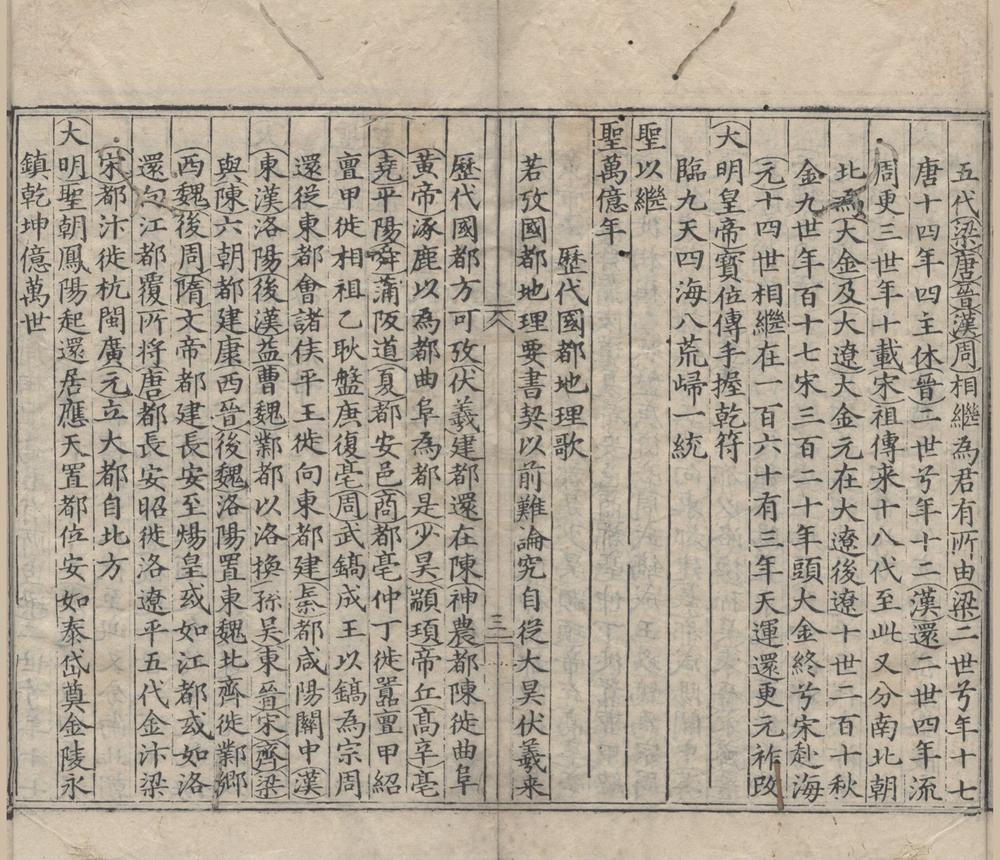 五代梁唐晉漢周相繼為君有所由梁二世兮年十七
唐十四年四主休晉二世兮年十二漢還二世四年流
周更三世年十載宋祖傳来十八代至此又分南北朝
北為大金及大遼大金元在大遼後遼十世二百十秋
金九世年百十七宋三百二十年頭大金終兮宋赴海
元十四世相繼在一百六十有三年天運還更元祚改
大明皇帝寶位傳手握乾符
臨九天四海八荒歸一統
聖以繼
聖萬億年
歷代國都地理歌
若攷國都地理要書契以前難論究自從大昊伏羲来
六
三
歷代國都方可攷伏羲建都還在陳神農都陳徙曲阜
黃帝涿鹿以為都曲阜為都是少昊顓頊帝丘高辛亳
堯平陽舜蒲阪道夏都安邑商都亳仲丁徙囂亶甲紹
亶甲徙相祖乙耿盤庚復亳周武鎬成王以鎬為宗周
還從東都會諸侯平王徙向東都建秦都咸陽關中漢
東漢洛陽後漢益曹魏鄴都以洛換孫吳東晉宋齊梁
與陳六朝都建康西晉後魏洛陽置東魏北齊徙鄴鄉
西魏後周隋文帝都建長安至煬皇或如江都或如洛
還向江都覆所將唐都長安昭徙洛遼平五代金汴梁
宋都汴徙杭閩廣元立大都自北方
大明聖朝鳳陽起還居應天置都位安如泰岱奠金陵永
鎮乾坤億萬世